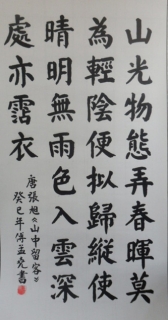 山光物態弄春暉莫
為輕陰便擬歸縱使
晴明無雨色入雲深
處亦霑衣
唐張旭《山中留客》
癸巳年傅孟書